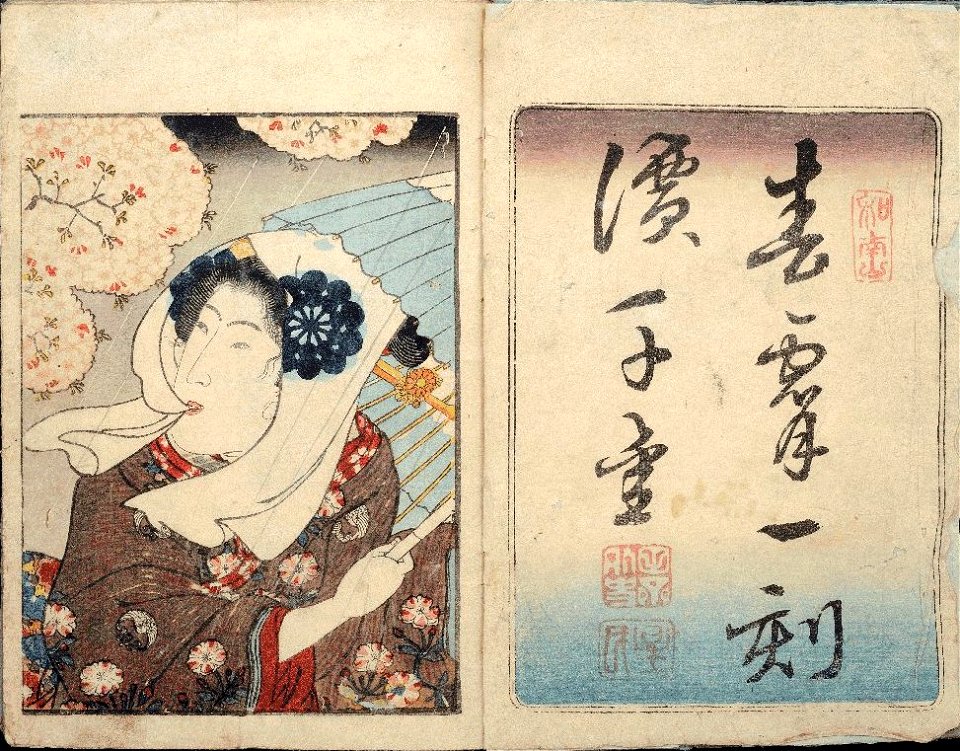 春霄一刻
價千金